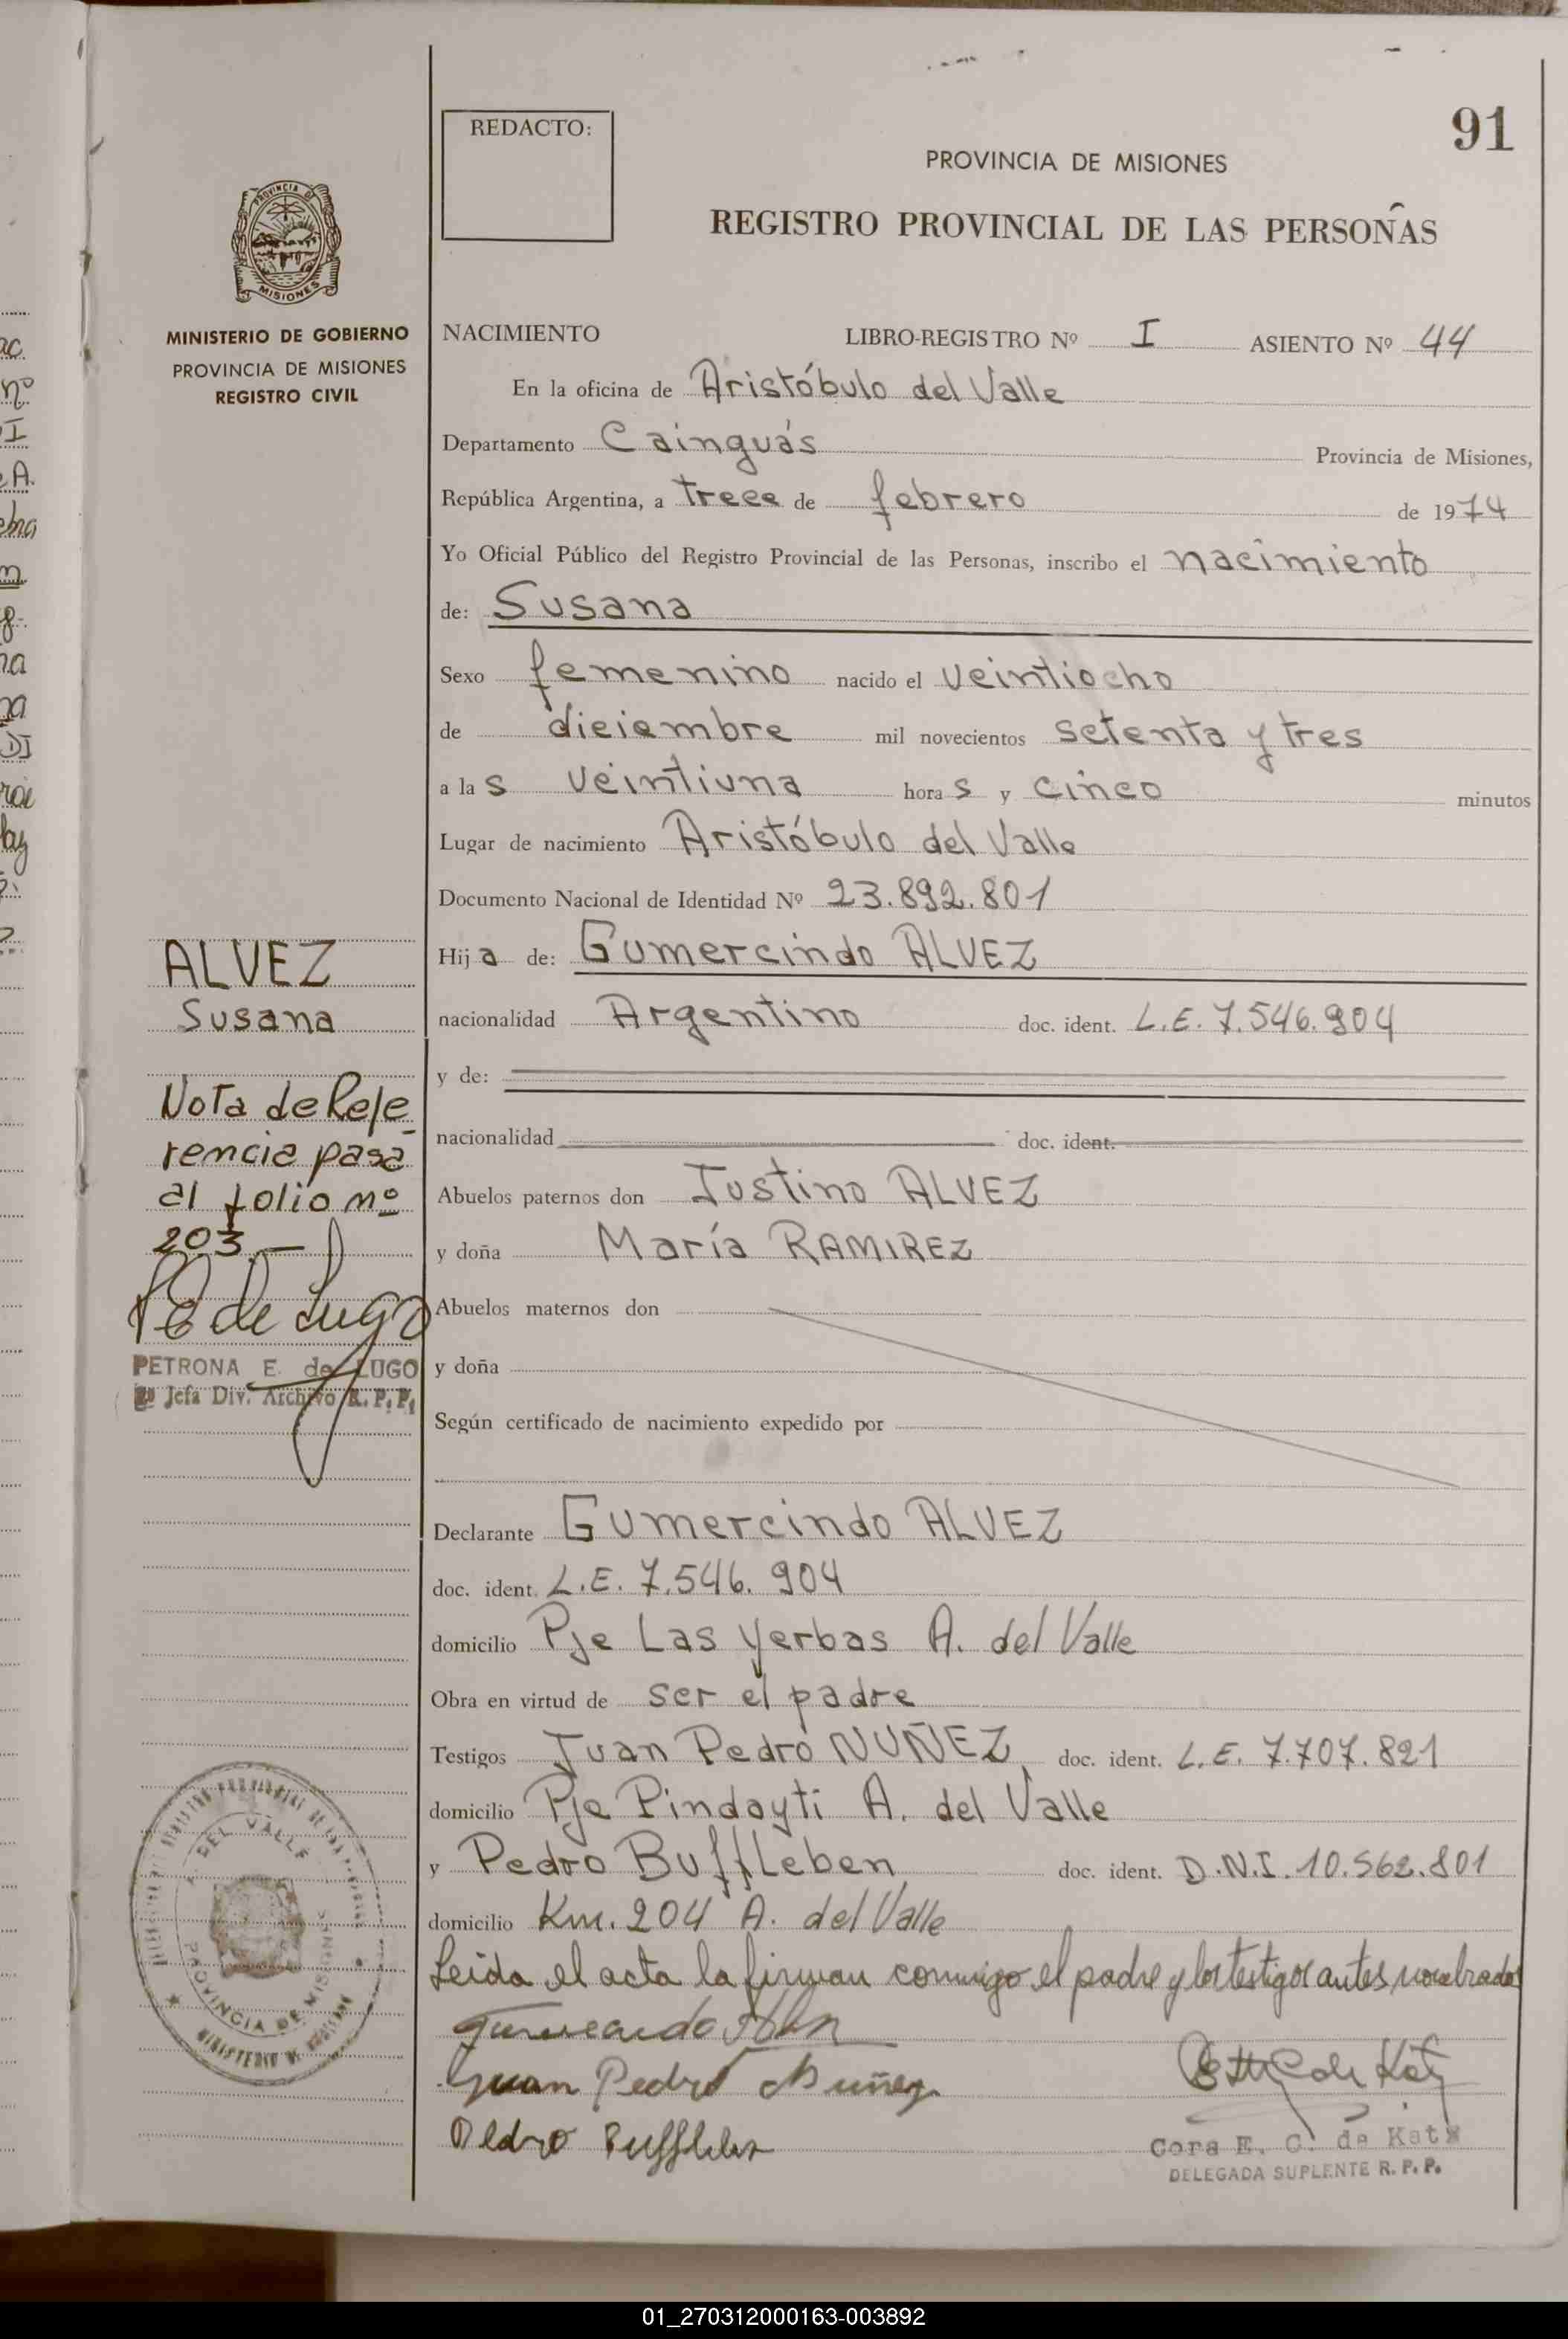 91
REDACTO:
PROVINCIA DE MISIONES
REGISTRO PROVINCIAL DE LAS PERSONAS
PROVINCIA DE
MISIONES
MINISTERIO DE GOBIERNO
PROVINCIA DE MISIONES
REGISTRO CIVIL
NACIMIENTO LIBRO-REGISTRO Nº I ASIENTO Nº 44
En la oficina de Aristóbulo del Valle
Departamento Cainguás Provincia de Misiones,
República Argentina, a trece de febrero de 1974
Yo Oficial Público del Registro Provincial de las Personas, inscribo el nacimiento
de: Susana
Sexo femenino nacido el veintiocho
de diciembre mil novecientos setenta y tres
a las veintiuna horas y cinco minutos
Lugar de nacimiento Aristóbulo del Valle
Documento Nacional de Identidad Nº 23.892.801
Hija de: Gumercindo ALVEZ
nacionalidad Argentino doc. ident. L.E. 7.546.904
y de:
nacionalidad doc. ident.
Abuelos paternos don Justino ALVEZ
y doña María RAMIREZ
Abuelos maternos don
y doña
Según certificado de nacimiento expedido por
Declarante Gumercindo ALVEZ
doc. ident. L.E. 7.546.904
domicilio Pje Las Yerbas A. del Valle
Obra en virtud de ser el padre
Testigos Juan Pedro NUÑEZ doc. ident. L.E. 7.707.821
domicilio Pje Pindayti A. del Valle
y Pedro Buffleben doc. ident. D.N.I. 10.562.801
domicilio Km. 204 A. del Valle
Leida el acta la firman conmigo el padre y los testigos antes nombrados
Juan Pedro Nuñez
Pedro Buffleben
Cora E. C. de Katz
DELEGADA SUPLENTE R. P. P.
ALVEZ
Susana
Nota de Refe
rencia pasa
al folio nº
203.—
PE de Lugo
PETRONA E. de LUGO
Jefa Div. Archivo R. P. P.
A. DEL VALLE
PROVINCIA DE MISIONES
MINISTERIO DE GOBIERNO
01_270312000163-003892